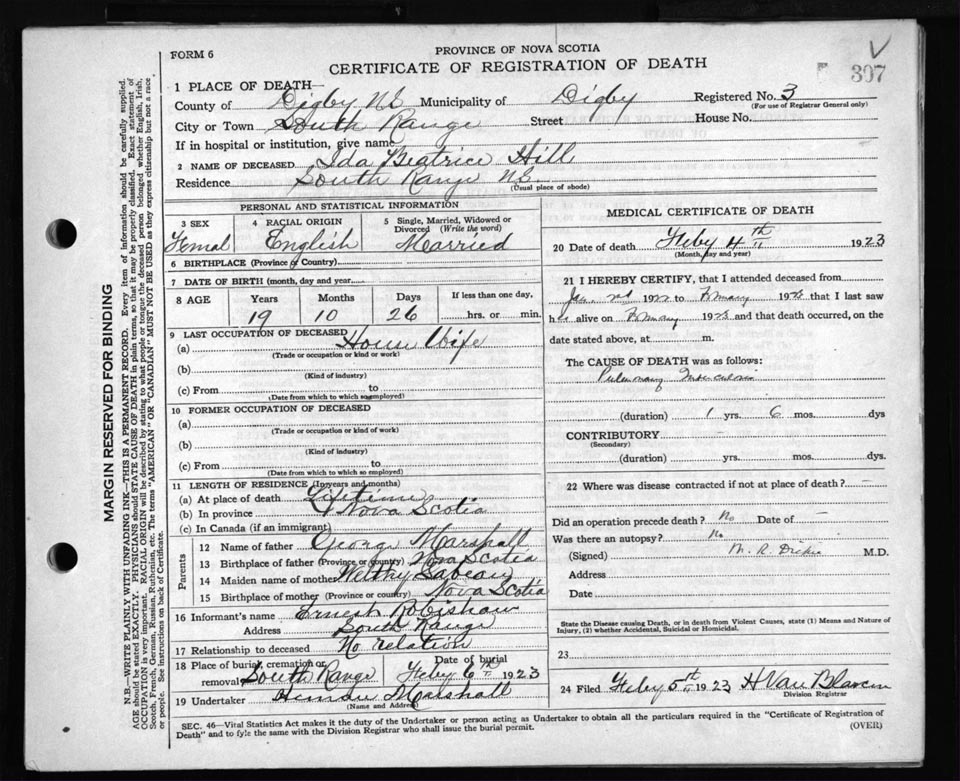 FORM 6
PROVINCE OF NOVA SCOTIA
CERTIFICATE OF REGISTRATION OF DEATH
307
1 PLACE OF DEATH
County of Digby NS Municipality of Digby Registered No. 3
(For use of Registrar General only)
City or Town South Range Street House No.
If in hospital or institution, give name
2 NAME OF DECEASED Ida Beatrice Hill
Residence South Range NS
(Usual place of abode)
PERSONAL AND STATISTICAL INFORMATION
3 SEX 4 RACIAL ORIGIN 5 Single, Married, Widowed or Divorced (Write the word)
Femal English Married
6 BIRTHPLACE (Province or Country)
7 DATE OF BIRTH (month, day and year)
8 AGE Years Months Days If less than one day,
19 10 26 hrs. or min.
9 LAST OCCUPATION OF DECEASED
(a) House Wife
(Trade or occupation or kind or work)
(b)
(Kind of industry)
(c) From to
(Date from which to which so employed)
10 FORMER OCCUPATION OF DECEASED
(a)
(Trade or occupation or kind of work)
(b)
(Kind of industry)
(c) From to
(Date from which to which so employed)
11 LENGTH OF RESIDENCE (In years and months)
(a) At place of death Lifetime
(b) In province Nova Scotia
(c) In Canada (if an immigrant)
Parents
12 Name of father George Marshall
13 Birthplace of father (Province or country) Nova Scotia
14 Maiden name of mother Welthy Sabean
15 Birthplace of mother (Province or country) Nova Scotia
16 Informant's name Ernest Robishaw
Address South Range
17 Relationship to deceased No relation
18 Place of burial, cremation or removal South Range Date of burial Feby 6th 1923
19 Undertaker Marshall
(Name and Address)
MEDICAL CERTIFICATE OF DEATH
20 Date of death Feby 4th 1923
(Month, day and year)
21 I HEREBY CERTIFY, that I attended deceased from
1922 to 1923 that I last saw
her alive on 1923 and that death occurred, on the
date stated above, at m.
The CAUSE OF DEATH was as follows:
Pulmonary Tuberculosis
(duration) 1 yrs. 6 mos. dys
CONTRIBUTORY
(Secondary)
(duration) yrs. mos. dys.
22 Where was disease contracted if not at place of death?
Did an operation precede death? No Date of
Was there an autopsy? No
(Signed) M.D.
Address
Date
State the Disease causing Death, or in death from Violent Causes, state (1) Means and Nature of
Injury, (2) whether Accidental, Suicidal or Homicidal.
23
24 Filed Feby 5th 1923 H Van
Division Registrar
SEC. 46—Vital Statistics Act makes it the duty of the Undertaker or person acting as Undertaker to obtain all the particulars required in the "Certificate of Registration of
Death" and to fyle the same with the Division Registrar who shall issue the burial permit.
(OVER)
MARGIN RESERVED FOR BINDING
N.B.—WRITE PLAINLY WITH UNFADING INK—THIS IS A PERMANENT RECORD. Every item of information should be carefully supplied.
AGE should be stated EXACTLY. PHYSICIANS should STATE CAUSE OF DEATH in plain terms, so that it may be properly classified. Exact statement of
OCCUPATION is very important. RACIAL ORIGIN will be described by stating to what people or tongue the deceased person belonged whether English, Irish,
Scotch, French, German, Russian, Ruthenian, etc. The terms "AMERICAN" OR "CANADIAN" MUST NOT BE USED as they express citizenship but not a race
or people. See instructions on back of Certificate.